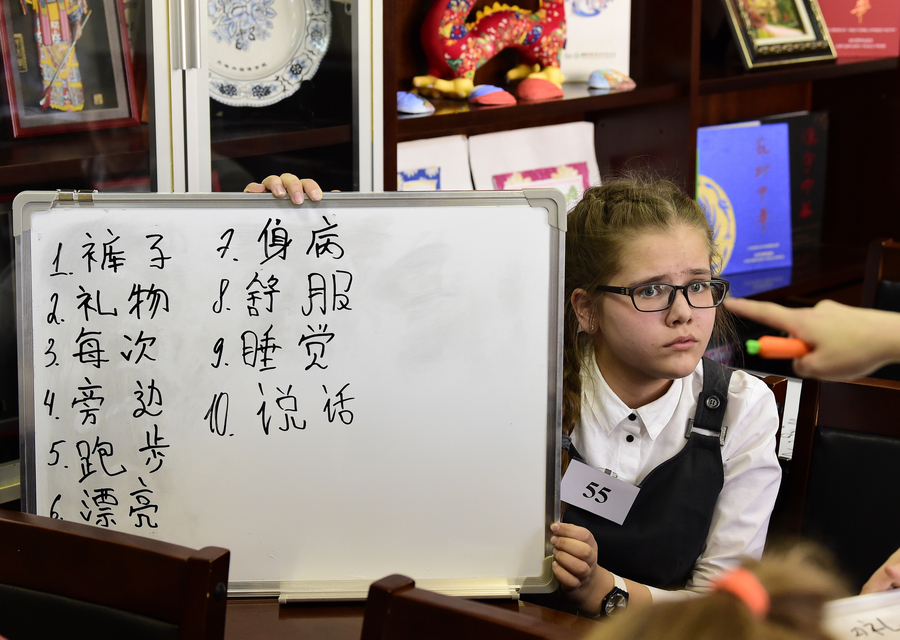 1. 裤子
2. 礼物
3. 每次
4. 旁边
5. 跑步
6. 漂亮
7. 病
8. 舒服
9. 睡觉
10. 说话
55